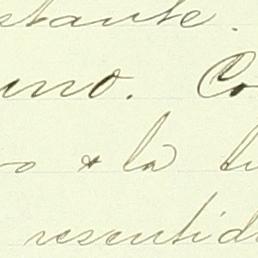 stante.
uno. Co
o & la tu
resentid